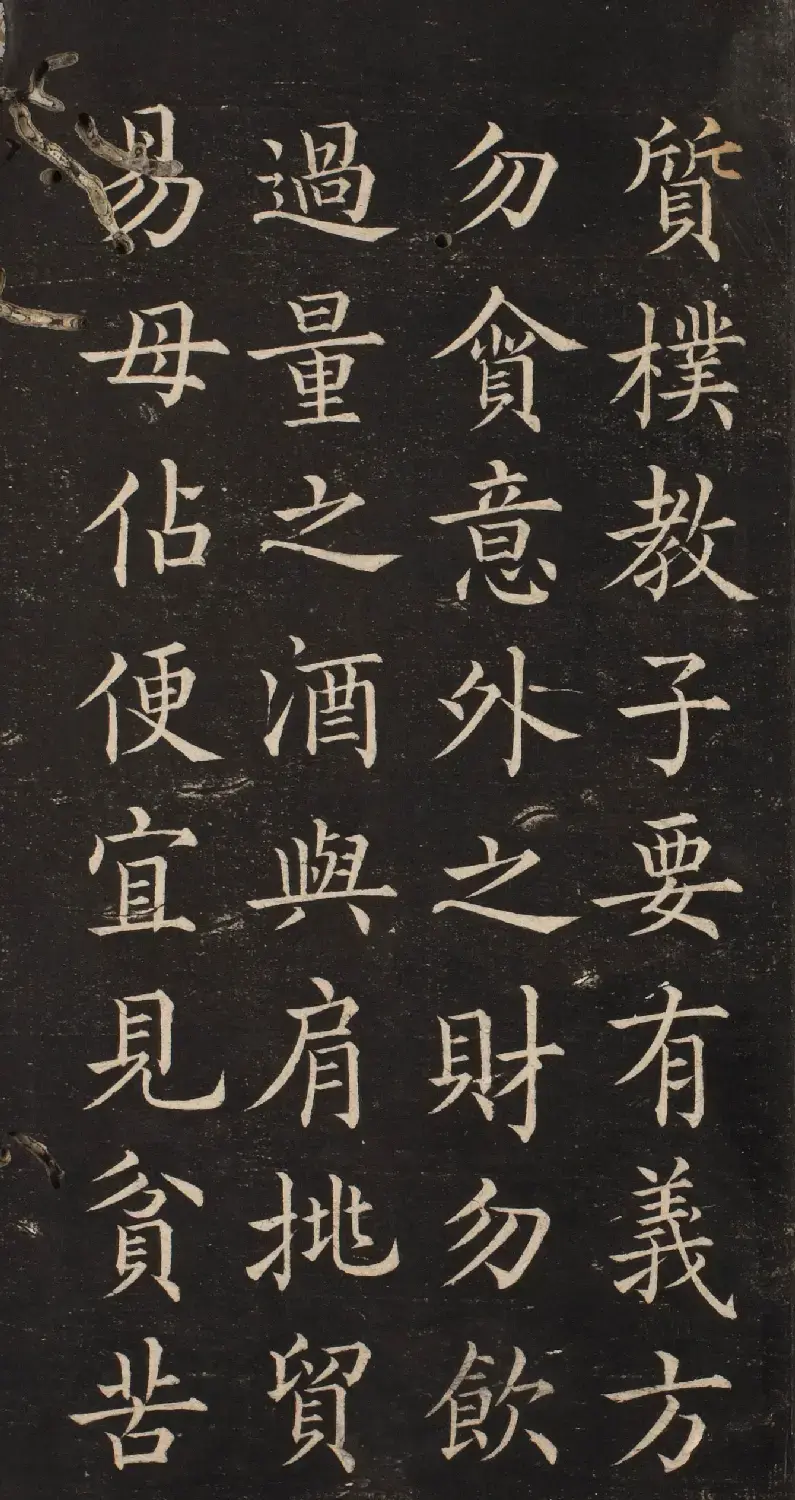 質樸教子要有義方
勿貪意外之財勿飲
過量之酒與肩挑貿
易毋佔便宜見貧苦